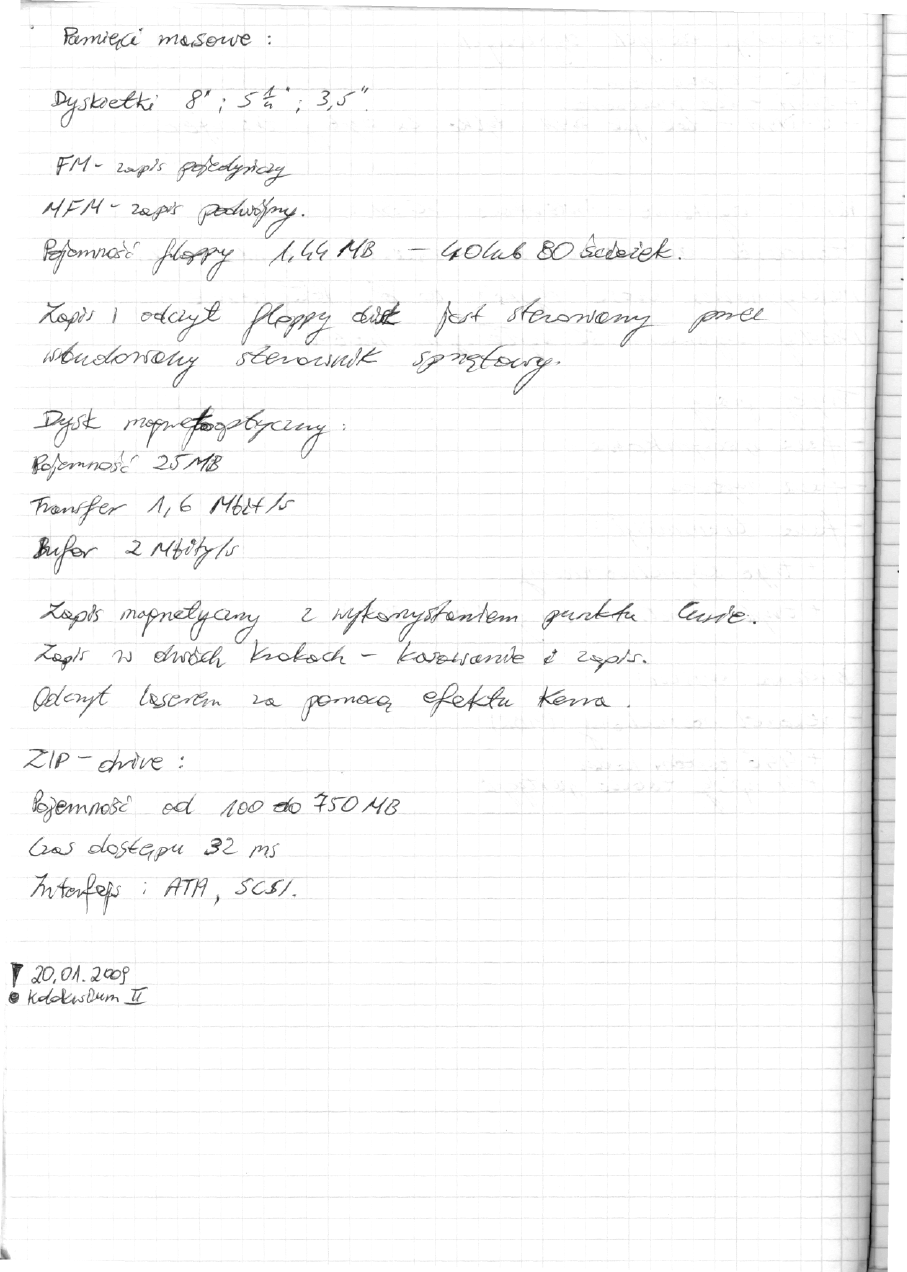 Pamięci masowe :
Dyskietki 8" ; 5 1/4" ; 3,5".
FM - zapis pojedyńczy
MFM - zapis podwójny.
Pojomność floppy 1,44 MB - 40 lub 80 ścieżek.
Zapis i odczyt floppy disk jest sterowany przez
wbudowany sterownik sprzętowy.
Dysk magnetooptyczny :
Pojemność 25 MB
Transfer 1,6 Mbit/s
Bufor 2 Mbity/s
Zapis magnetyczny z wykorzystaniem punktu Curie.
Zapis w dwóch krokach - kasowanie i zapis.
Odczyt laserem za pomocą efektu Kerra.
ZIP - drive :
Pojemność od 100 do 750 MB
Czas dostępu 32 ms
Interfejs : ATA, SCSI.
! 20.01.2009
Kolokwium II